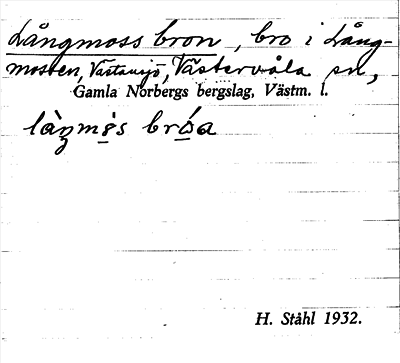 Långmossbron, bro i Lång-
mossen, Västansjö, Västervåla sn,
Gamla Norbergs bergslag, Västm. l.
làŋms bróa
H. Ståhl 1932.